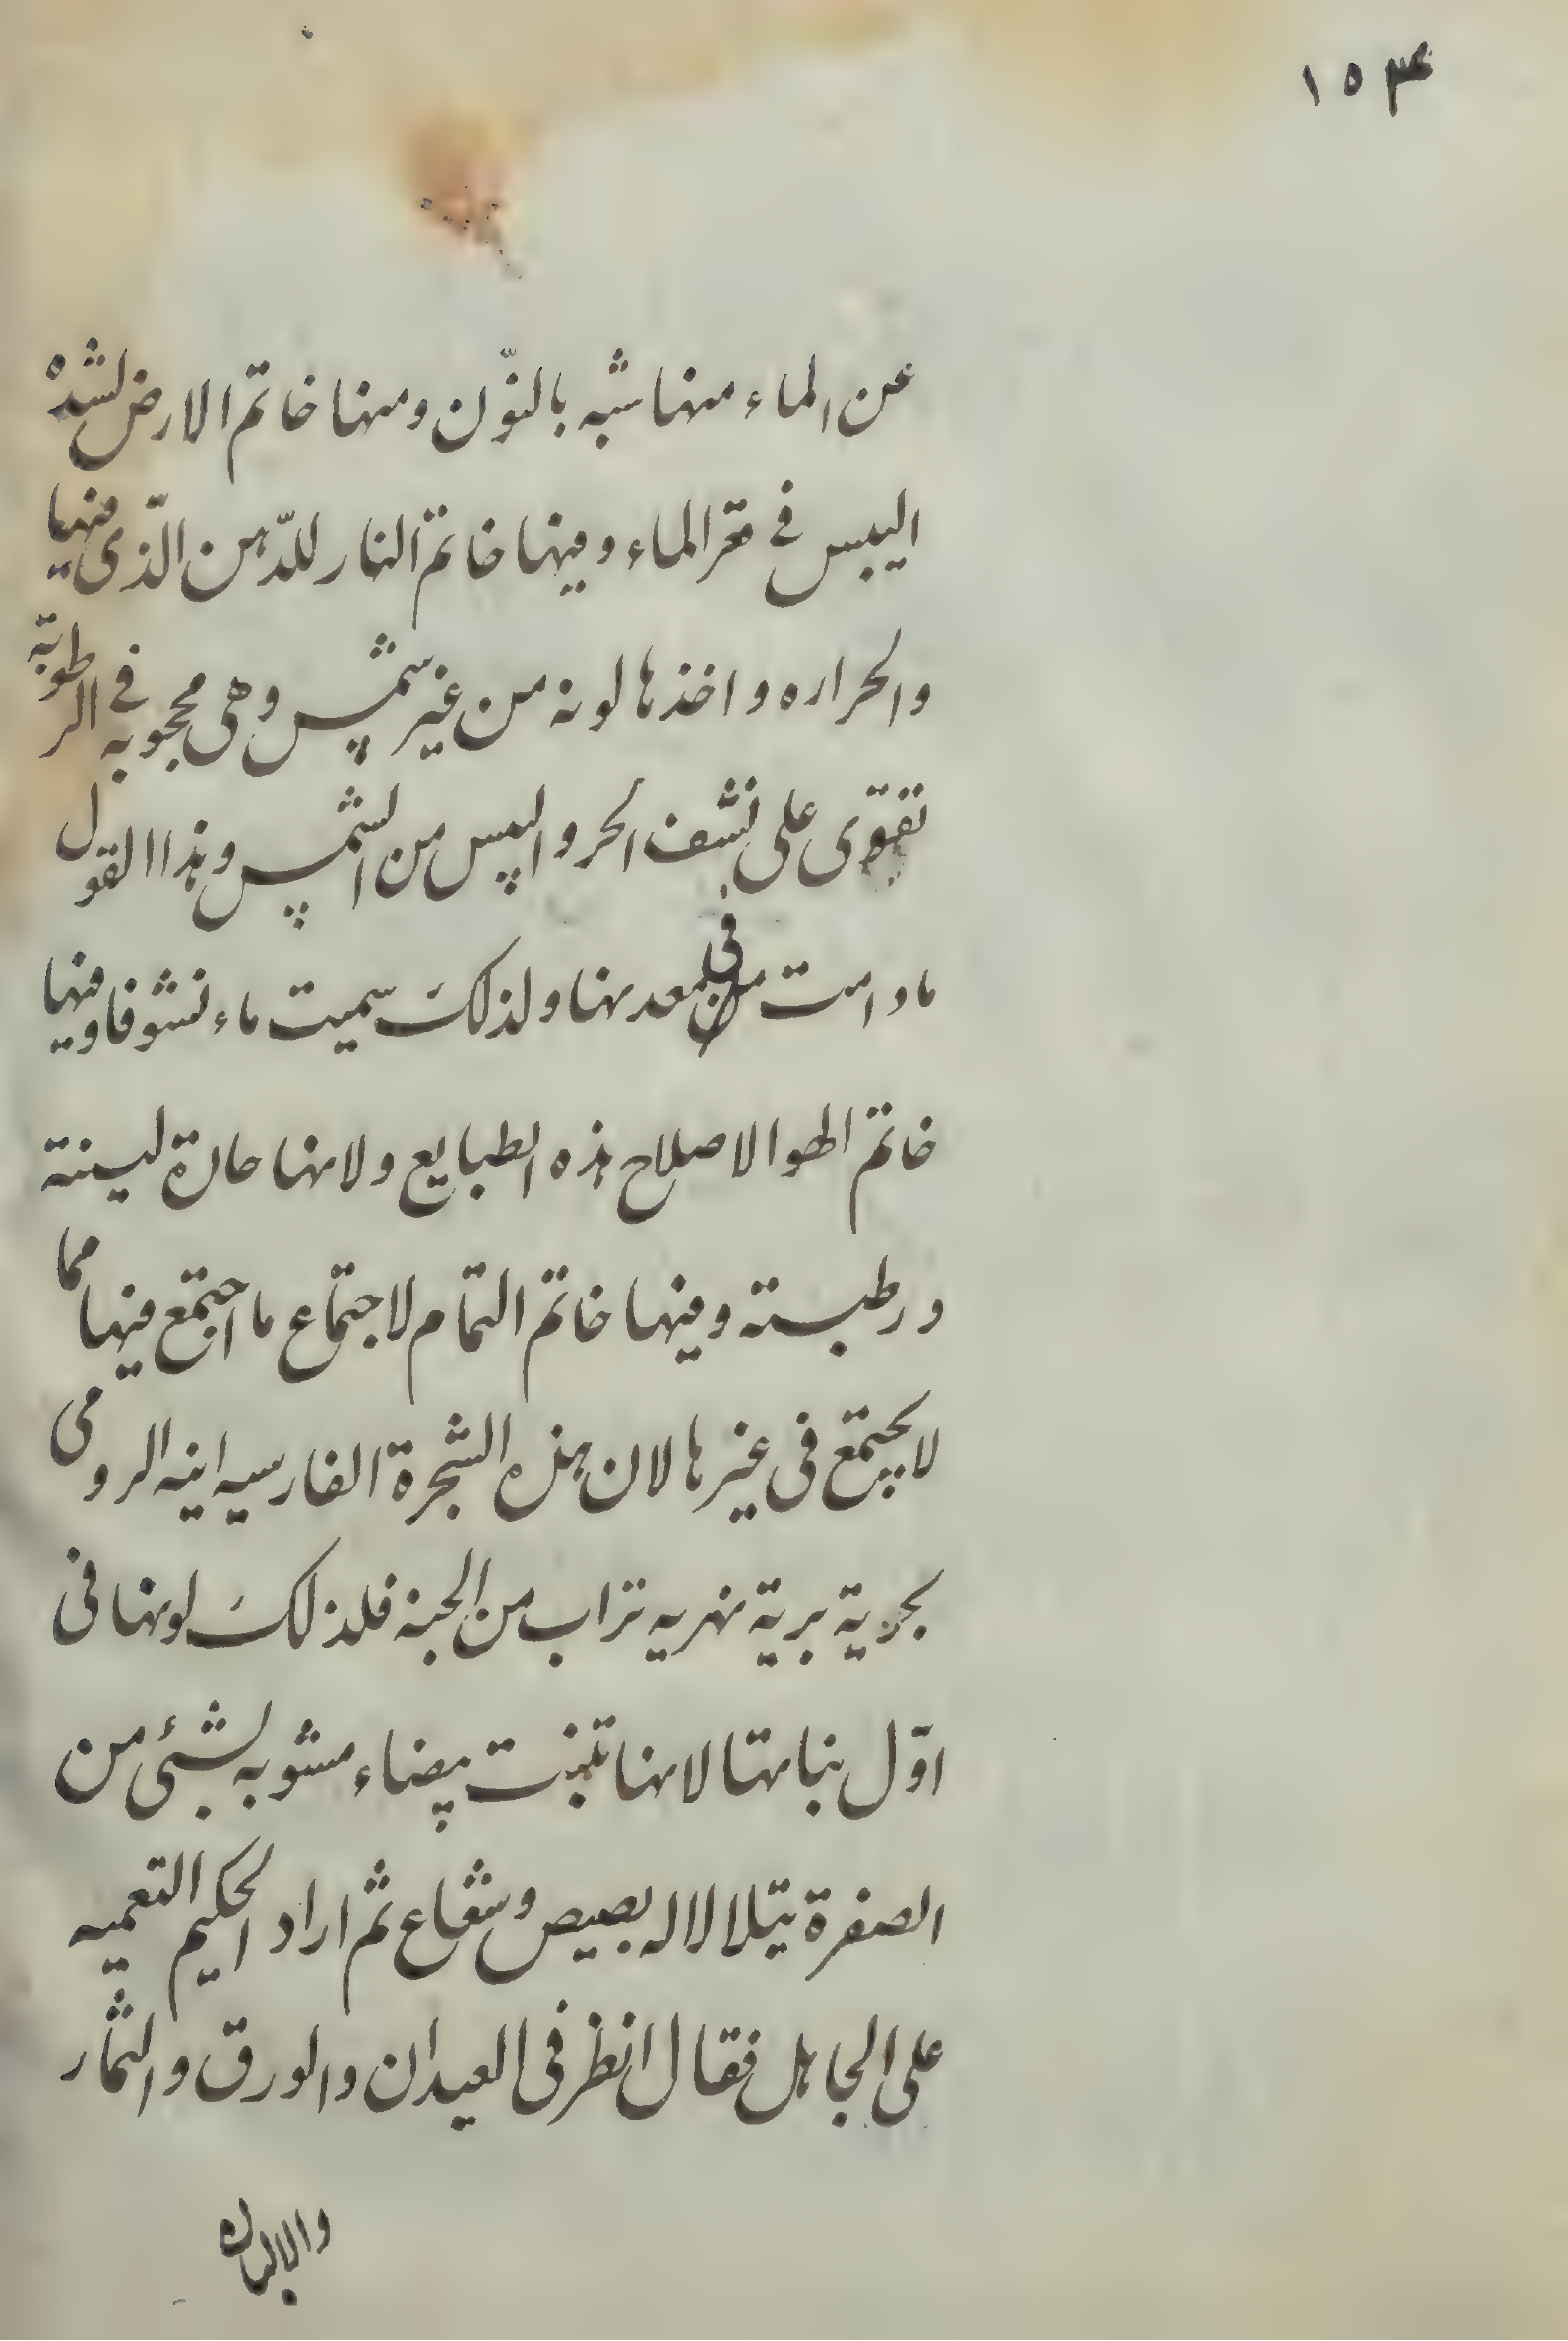 ١٥٣٤
عن الماء منها شبه بالنّون ومنها خاتم الارض لشدة
اليبس فى قعر الماء وفيها خاتم النار للدّهن الذّى فيها
والحراره واخذها لونه من غير شمس وهى محجوبه فى الرطوبة
تقوّى على نشف الحر واليبس من الشمس وهذا القول
مادامت فى معدنها ولذلك سميت ماء نشوفا وفيها
خاتم الهوا لاصلاح هذه الطبايع ولانها حارة لينة
ورطبته وفيها خاتم التمام لاجتماع ما اجتمع فيها مما
لا يجتمع فى غيرها لان هذه الشجرة الفارسيه ابنه الرومى
بحرية برية نهريه تراب من الجنة فلذلك لونها فى
اوّل نباتها لانها تنبت بيضاء مشوبه بشئى من
الصفرة يتلالا له بصيص وشعاع ثم اراد الحكيم التعميه
على الجاهل فقال انظر فى العيدان والورق والثمار
والالبان